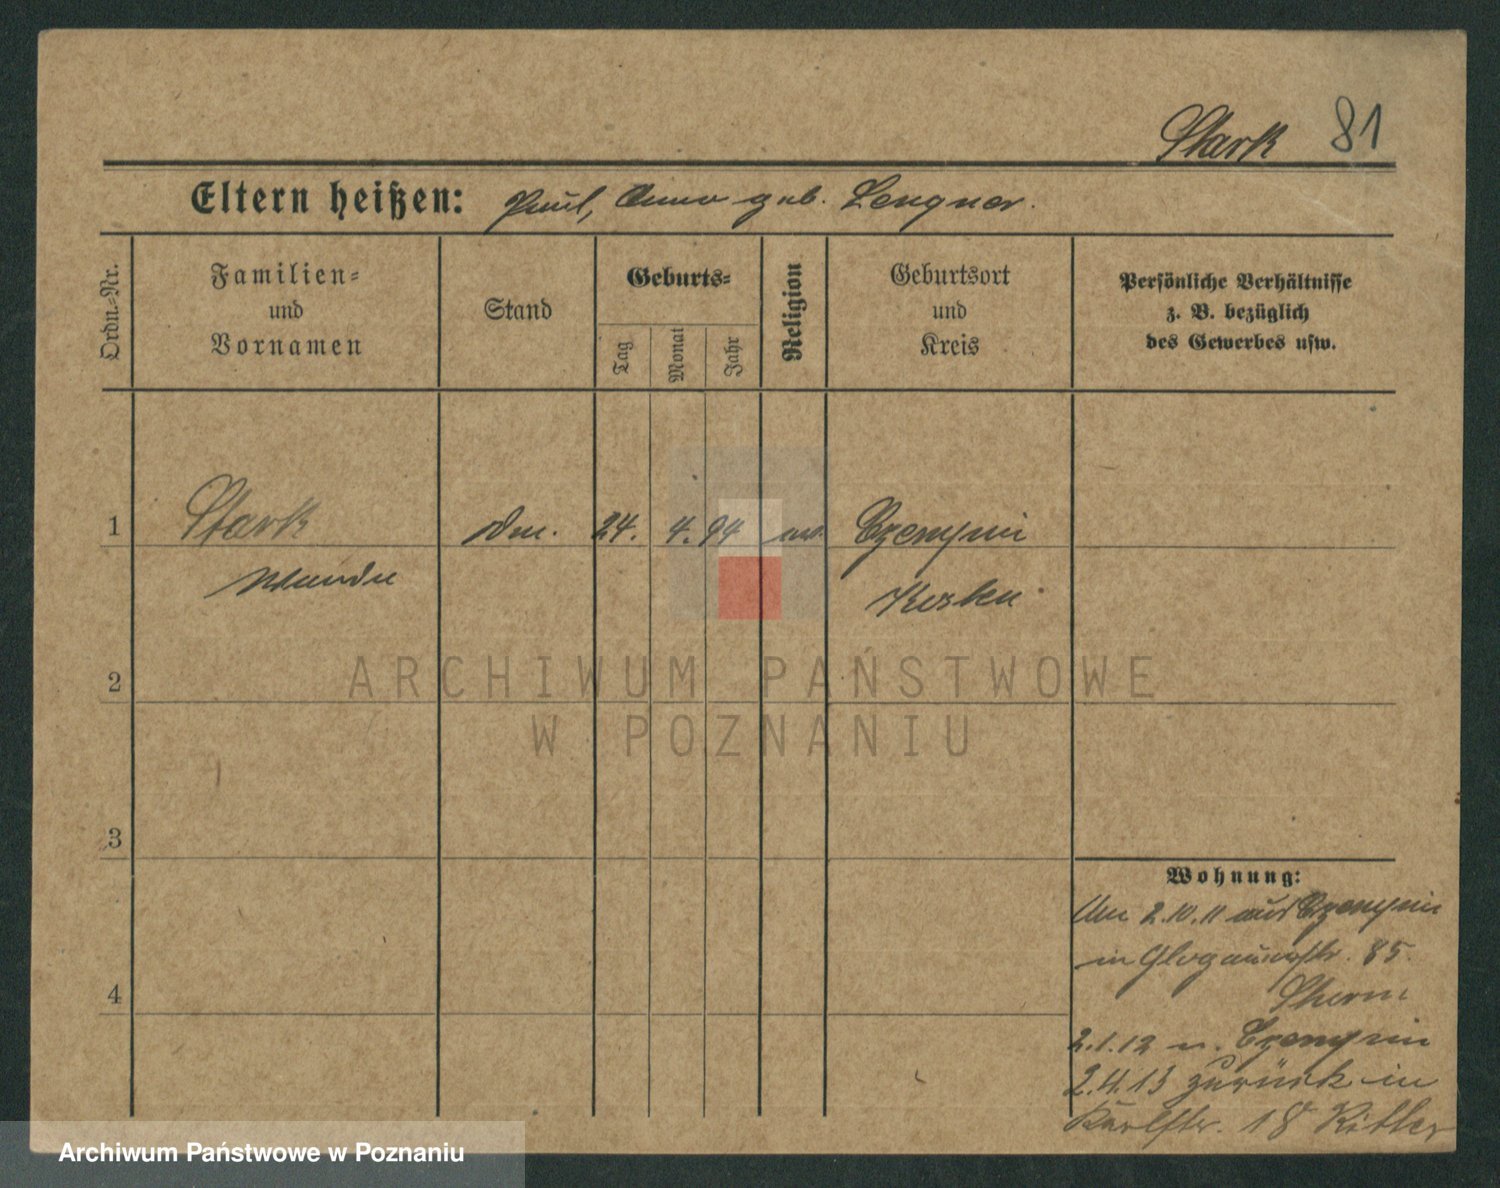 Stark 81
Eltern heißen: Paul, Anna geb. Lengner.
Ordn.=Nr.
Familien=
und
Vornamen
Stand
Geburts=
Tag
Monat
Jahr
Religion
Geburtsort
und
Kreis
Persönliche Verhältnisse
z. B. bezüglich
des Gewerbes usw.
1 Stark 24. 4. 94 Czempin
Wanda Kosten
2
3
4
Wohnung:
2.10.11 aus Czempin
in Glogauerstr. 85.
2.1.12 n. Czempin
2.4.13 zurück in
Karlstr. 18 Ritter
ARCHIWUM PAŃSTWOWE
W POZNANIU
Archiwum Państwowe w Poznaniu